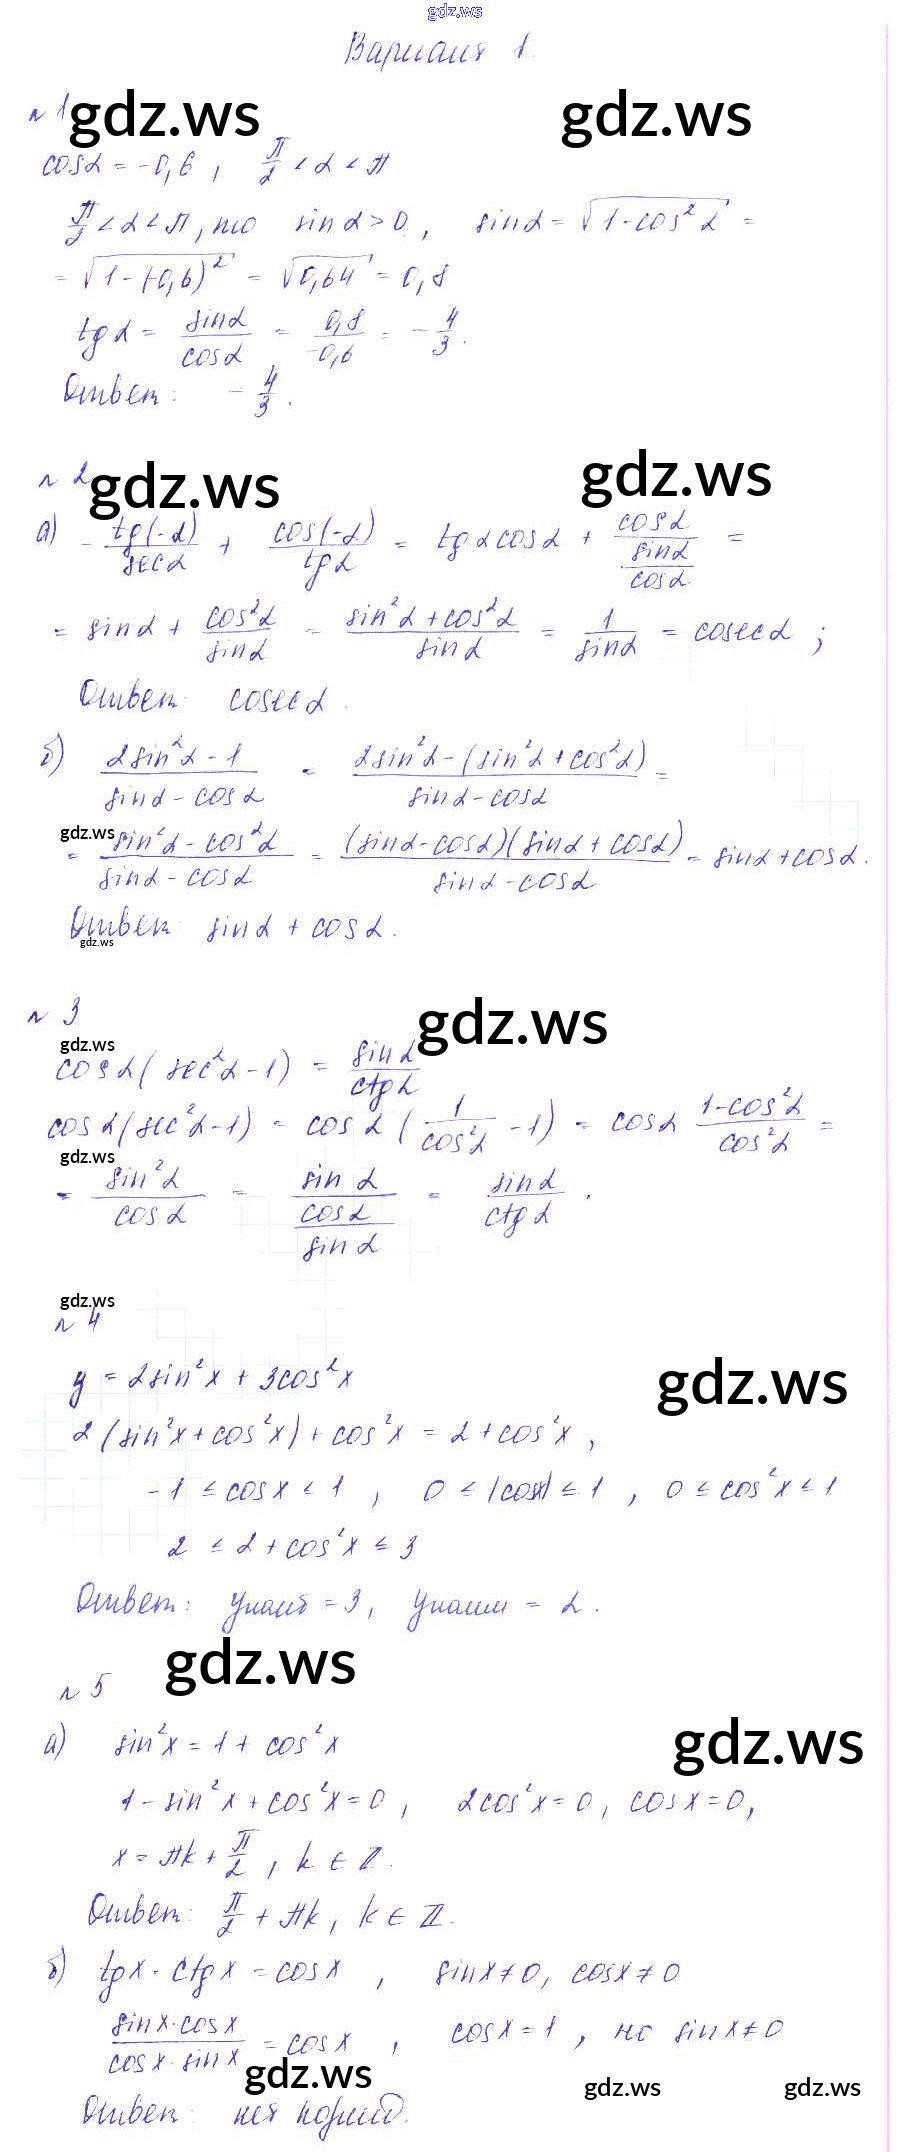 gdz.ws
Вариант 1.
№ 1 gdz.ws gdz.ws
cosα = -0,6 , π/2 < α < π
π/2 < α < π, то sin α > 0, sin α = √(1 - cos² α) =
= √(1 - (-0,6)²) = √(0,64) = 0,8
tg α = sin α / cos α = 0,8 / -0,6 = - 4/3.
Ответ: - 4/3.
№ 2 gdz.ws gdz.ws
а) - tg(-α) / sec α + cos(-α) / tg α = tg α cos α + cos α / (sin α / cos α) =
= sin α + cos² α / sin α = (sin² α + cos² α) / sin α = 1 / sin α = cosec α ;
Ответ: cosec α.
б) (2sin² α - 1) / (sin α - cos α) = (2sin² α - (sin² α + cos² α)) / (sin α - cos α) =
gdz.ws
= (sin² α - cos² α) / (sin α - cos α) = (sin α - cos α)(sin α + cos α) / (sin α - cos α) = sin α + cos α.
Ответ: sin α + cos α.
gdz.ws
№ 3 gdz.ws
gdz.ws
cos α (sec² α - 1) = sin α / ctg α
cos α (sec² α - 1) = cos α (1 / cos² α - 1) = cos α (1 - cos² α) / cos² α =
gdz.ws
= sin² α / cos α = sin α / (cos α / sin α) = sin α / ctg α .
gdz.ws
№ 4
y = 2sin² x + 3cos² x gdz.ws
2 (sin² x + cos² x) + cos² x = 2 + cos² x ,
-1 ≤ cos x ≤ 1 , 0 ≤ |cos x| ≤ 1 , 0 ≤ cos² x ≤ 1
2 ≤ 2 + cos² x ≤ 3
Ответ: yнаиб = 3, yнаим = 2.
№ 5 gdz.ws
а) sin² x = 1 + cos² x gdz.ws
1 - sin² x + cos² x = 0 , 2cos² x = 0, cos x = 0,
x = πk + π/2 , k ∈ Z.
Ответ: π/2 + πk, k ∈ Z.
б) tg x · ctg x = cos x , sin x ≠ 0, cos x ≠ 0
sin x · cos x / cos x · sin x = cos x , cos x = 1 , но sin x ≠ 0
gdz.ws gdz.ws gdz.ws
Ответ: нет корней.